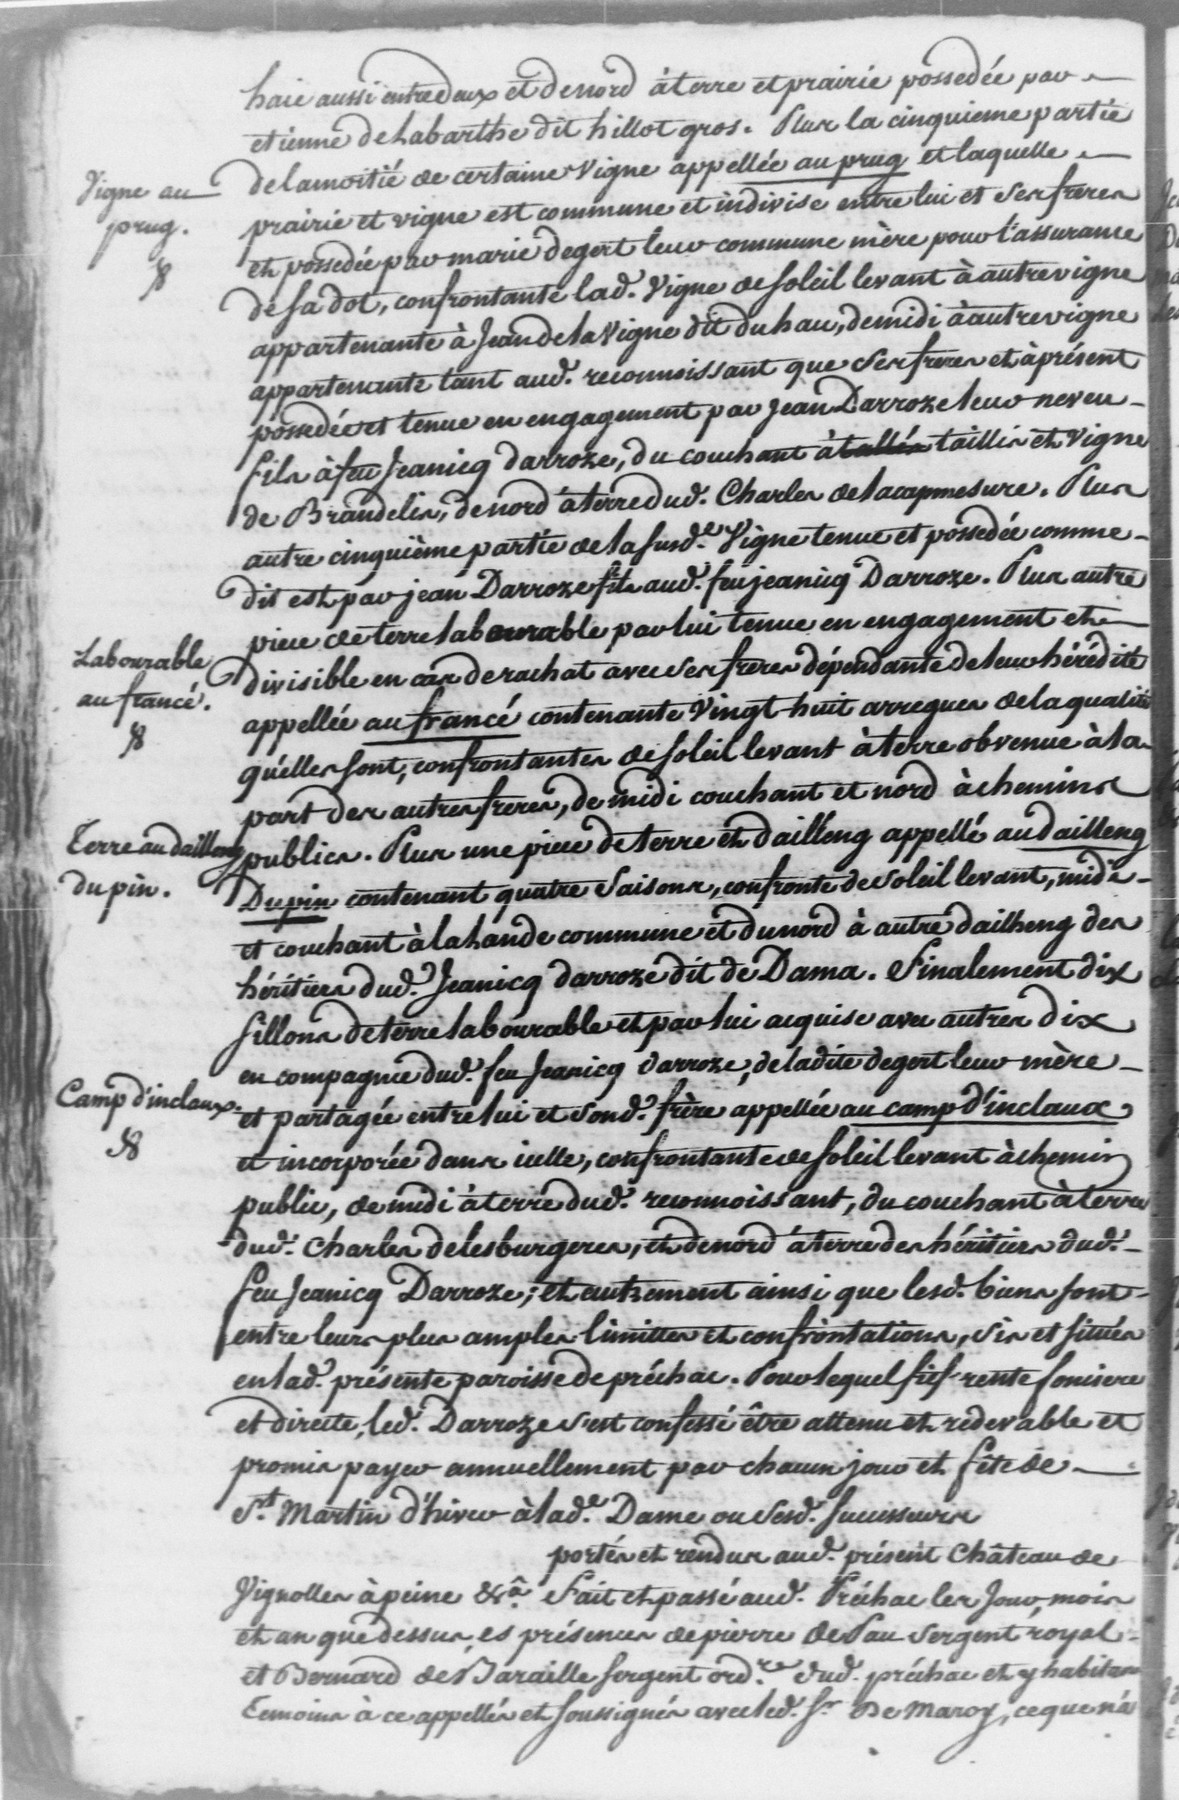 haie aussi entredeux et de nord à terre et prairie possedée par
etienne de Labarthe dit hillot gros. Plus la cinquieme partie
Vigne au
prug.
de la moitié de certaine Vigne appellée au prug et laquelle
prairie et vigne est commune et indivise entre lui et ses freres
et possedée par marie degert leur commune mère pour l'assurance
de sa dot, confrontante lad. Vigne de soleil levant à autre vigne
appartenante à Jean de la Vigne dit du hau, de midi à autre vigne
appartenante tant aud. reconnoissant que ses freres et à présent
possedée et tenue en engagement par Jean Darroze leur neveu
fils à feu Jeanicq darroze, du couchant à taillis et Vigne
de Brandelis, de nord à terre dud. Charles de lacapmesure. Plus
autre cinquième partie de la susd.e Vigne tenue et possedée comme
dit est par jean Darroze fils aud. feu jeanicq Darroze. Plus autre
piece de terre labourable par lui tenue en engagement et
Labourable
au francé.
divisible en cas de rachat avec ses freres dépendante de leur hérédité
appellée au francé contenante Vingt huit arregues de la qualité
qu'elles sont, confrontantes de soleil levant à terre obvenue à la
part des autres freres, de midi couchant et nord à chemins
Terre au dailleng
du pin.
publics. Plus une piece de terre et dailleng appellé au dailleng
Du pin contenant quatre Saisons, confronte de soleil levant, midi
et couchant à la Lande commune et du nord à autre dailheng des
héritiers dud. Jeanicq darroze dit de Dama. Finalement dix
sillons de terre labourable et par lui acquise avec autres dix
en compagnie dud. feu Jeanicq darroze, de ladite degert leur mère
Camp d'inclaux.
et partagée entre lui et sond. frère appellée au camp d'inclaux
et incorporée dans icelle, confrontante de soleil levant à chemin
public, de midi à terre dud. reconnoissant, du couchant à terre
dud. Charles de lesburgeres, et de nord à terre des héritiers dud.
feu Jeanicq Darroze; et autrement ainsi que lesd. biens sont
entre leurs plus amples limittes et confrontations, sis et situés
en lad. présente paroisse de préchac. Pour lequel fief rente fonciere
et directe, led. Darroze s'est confessé être attenu et redevable et
promis payer annuellement par chacun jour et fête de
St. Martin d'hiver à lad.e Dame ou sesd. successeurs
portés et rendus aud. présent Château de
Vignolles à peine &a. Fait et passé aud. Préchac les Jour, mois
et an que dessus, es présences de pierre de Pau sergent royal
et Bernard de Baraille sergent ord.re dud. préchac et y habitans
Temoins à ce appellés et soussignés avec led. Sr. De Maroy, ce que n'a